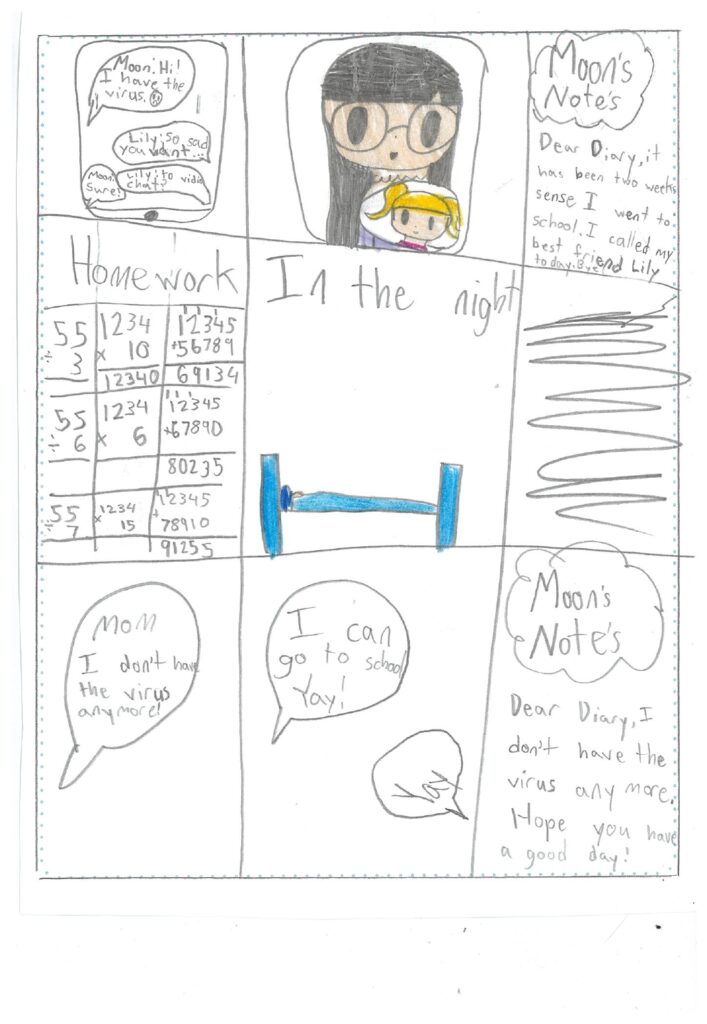 Moon: Hi!
I have the
virus.
Lily: So sad
you want...
Moon:
Sure!
Lily: to vidio
chat?
Moon's
Note's
Dear Diary, it
has been two weeks
sense I went to
school. I called my
best friend Lily
today. Bye
Homework
55
÷ 3
1234
× 10
12340
1 1 1
12345
+56789
69134
55
÷ 6
1234
× 6
1 1 1
12345
+67890
80235
55
÷ 7
1234
× 15
12345
+
78910
91255
In the night
Mom
I don't have
the virus
anymore!
I can
go to school
Yay!
Yay
Moon's
Note's
Dear Diary, I
don't have the
virus any more.
Hope you have
a good day!